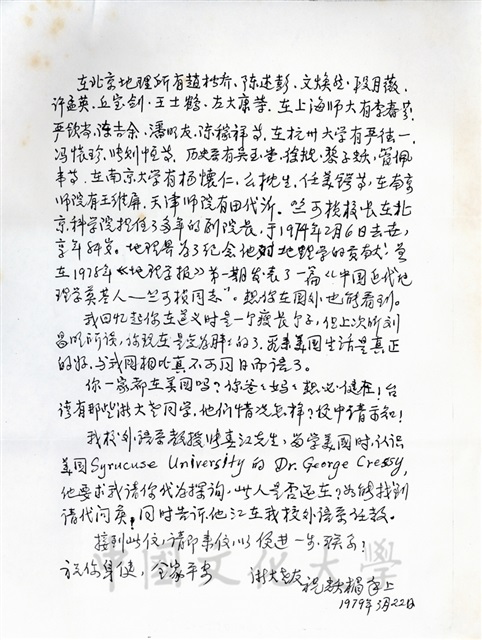 在北京地理所有赵松乔、陈述彭、文焕然、段月薇、
许孟英、丘宝剑、王士鹤、左大康等. 在上海师大有李春芬,
严钦尚、陈吉余、潘明友、陈稼祥等, 在杭州大学有严德一,
冯怀珍、等. 历史系有吴玉、徐规、黎子耀、管佩
韦等. 在南京大学有杨怀仁、么枕生、任美锷等, 在南京
师院有王维屏, 天津师院有田代沂. 竺可桢校长在北
京科学院担任了多年的副院长, 于1974年2月6日去世,
享年84岁. 地理界为了纪念他对地理学的贡献, 曾
在1978年《地理学报》第一期发表了一篇《中国近代地
理学奠基人—竺可桢同志》. 想你在国外也能看到.
我回忆起你在遵义时是一个瘦长个子, 但上次听刘
所谈, 你现在是变为胖的了. 看来美国生活是真正
的好, 与我国相比真不可同日而语了.
你一家都在美国吗? 你爸爸妈妈想必健在! 台
湾有那些浙大老同学, 他们情况怎样? 便中请示知!
我校外语系教授江先生, 留学美国时, 认识
美国Syrucuse University 的 Dr. George Cressy,
他要求我请你代为探询, 此人是否还在? 如能找到
请代问候, 同时告诉他江在我校外语系任教.
接到此信, 请即来信, 以便进一步联系!
祝你身健, 全家平安 浙大老友 祝 上
1979年3月22日
中國文化大學